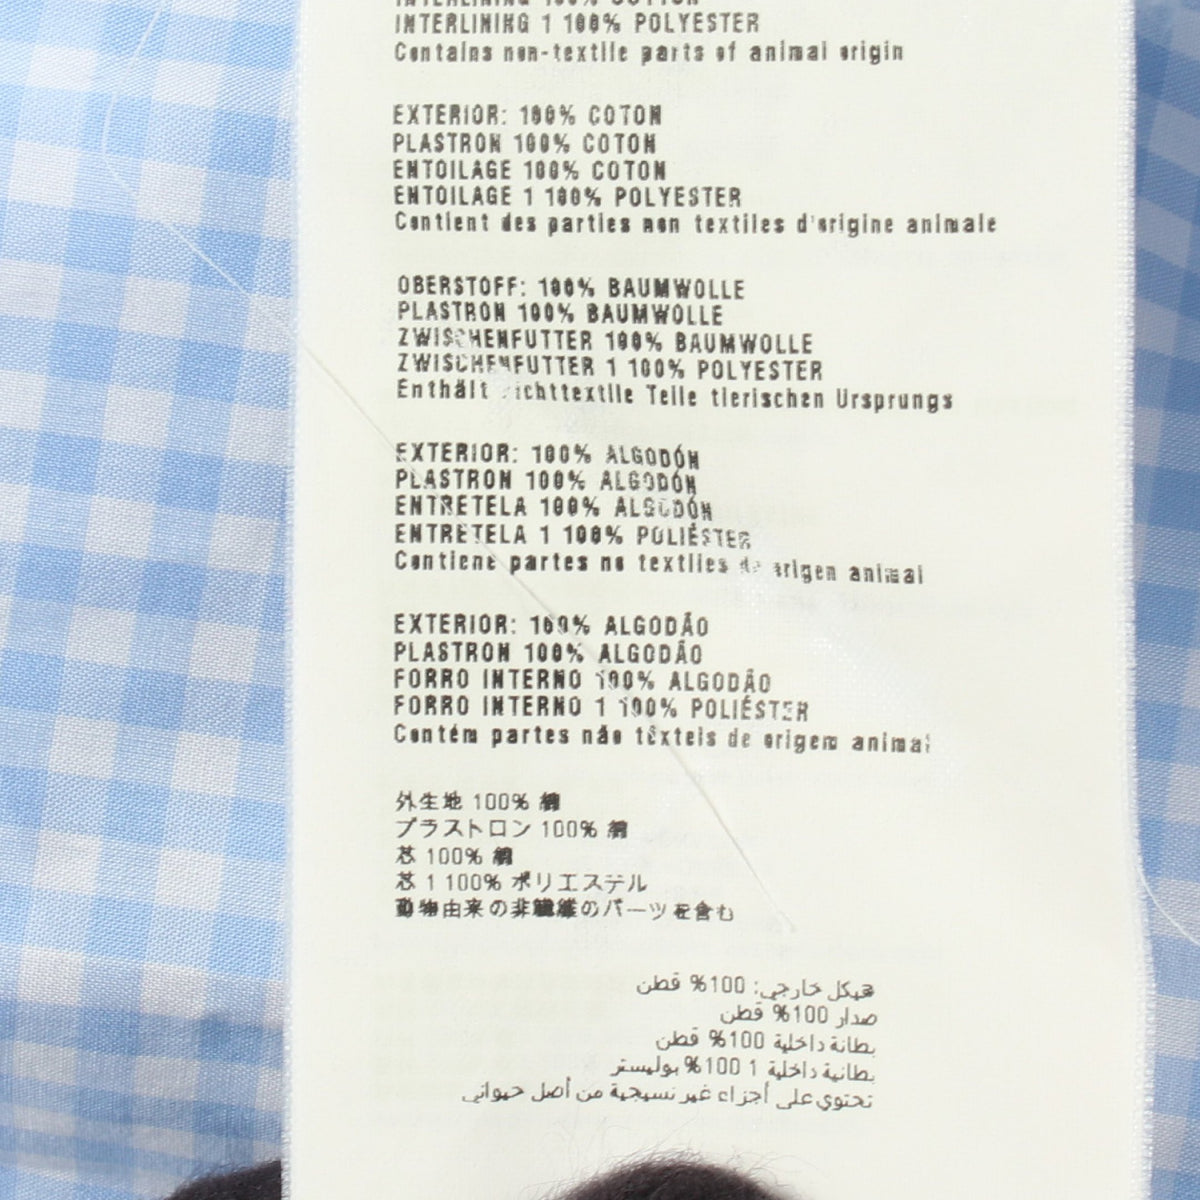 INTERLINING 100% COTTON
INTERLINING 1 100% POLYESTER
Contains non-textile parts of animal origin
EXTERIOR: 100% COTON
PLASTRON 100% COTON
ENTOILAGE 100% COTON
ENTOILAGE 1 100% POLYESTER
Contient des parties non textiles d'origine animale
OBERSTOFF: 100% BAUMWOLLE
PLASTRON 100% BAUMWOLLE
ZWISCHENFUTTER 100% BAUMWOLLE
ZWISCHENFUTTER 1 100% POLYESTER
Enthält nichttextile Teile tierischen Ursprungs
EXTERIOR: 100% ALGODÓN
PLASTRON 100% ALGODÓN
ENTRETELA 100% ALGODÓN
ENTRETELA 1 100% POLIÉSTER
Contiene partes no textiles de origen animal
EXTERIOR: 100% ALGODÃO
PLASTRON 100% ALGODÃO
FORRO INTERNO 100% ALGODÃO
FORRO INTERNO 1 100% POLIÉSTER
Contém partes não têxteis de origem animal
外生地 100% 綿
プラストロン 100% 綿
芯 100% 綿
芯 1 100% ポリエステル
動物由来の非繊維のパーツを含む
هيكل خارجي: 100% قطن
صدار 100% قطن
بطانة داخلية 100% قطن
بطانية داخلية 1 100% بوليستر
تحتوي على أجزاء غير نسيجية من أصل حيواني